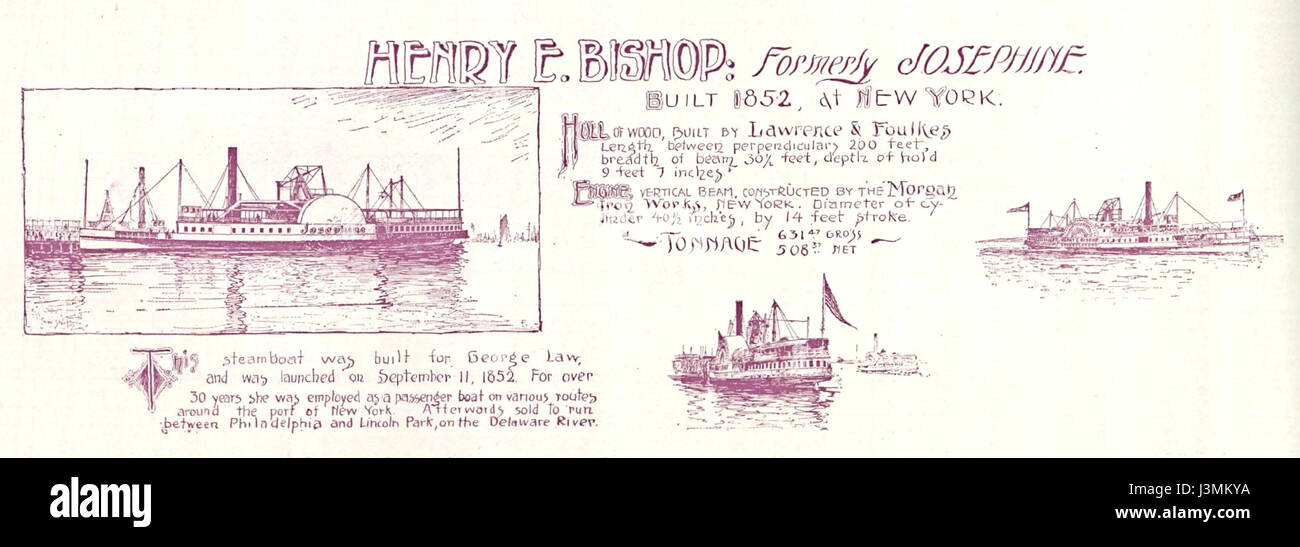 HENRY E. BISHOP: Formerly JOSEPHINE.
BUILT 1852, at NEW YORK.
HULL OF WOOD, BUILT BY Lawrence & Foulkes
Length between perpendiculars 200 feet,
breadth of beam 30½ feet, depth of hold
9 feet 7 inches.
ENGINE, VERTICAL BEAM, CONSTRUCTED BY THE Morgan
Iron Works, NEW YORK. Diameter of cy-
linder 40½ inches, by 14 feet stroke.
TONNAGE 631 47 GROSS
508 37 NET
Josephine
This steamboat was built for George Law,
and was launched on September 11, 1852. For over
30 years she was employed as a passenger boat on various routes
around the port of New York. Afterwards sold to run
between Philadelphia and Lincoln Park, on the Delaware River.
alamy
alamy stock photo
J3MKYA
www.alamy.com